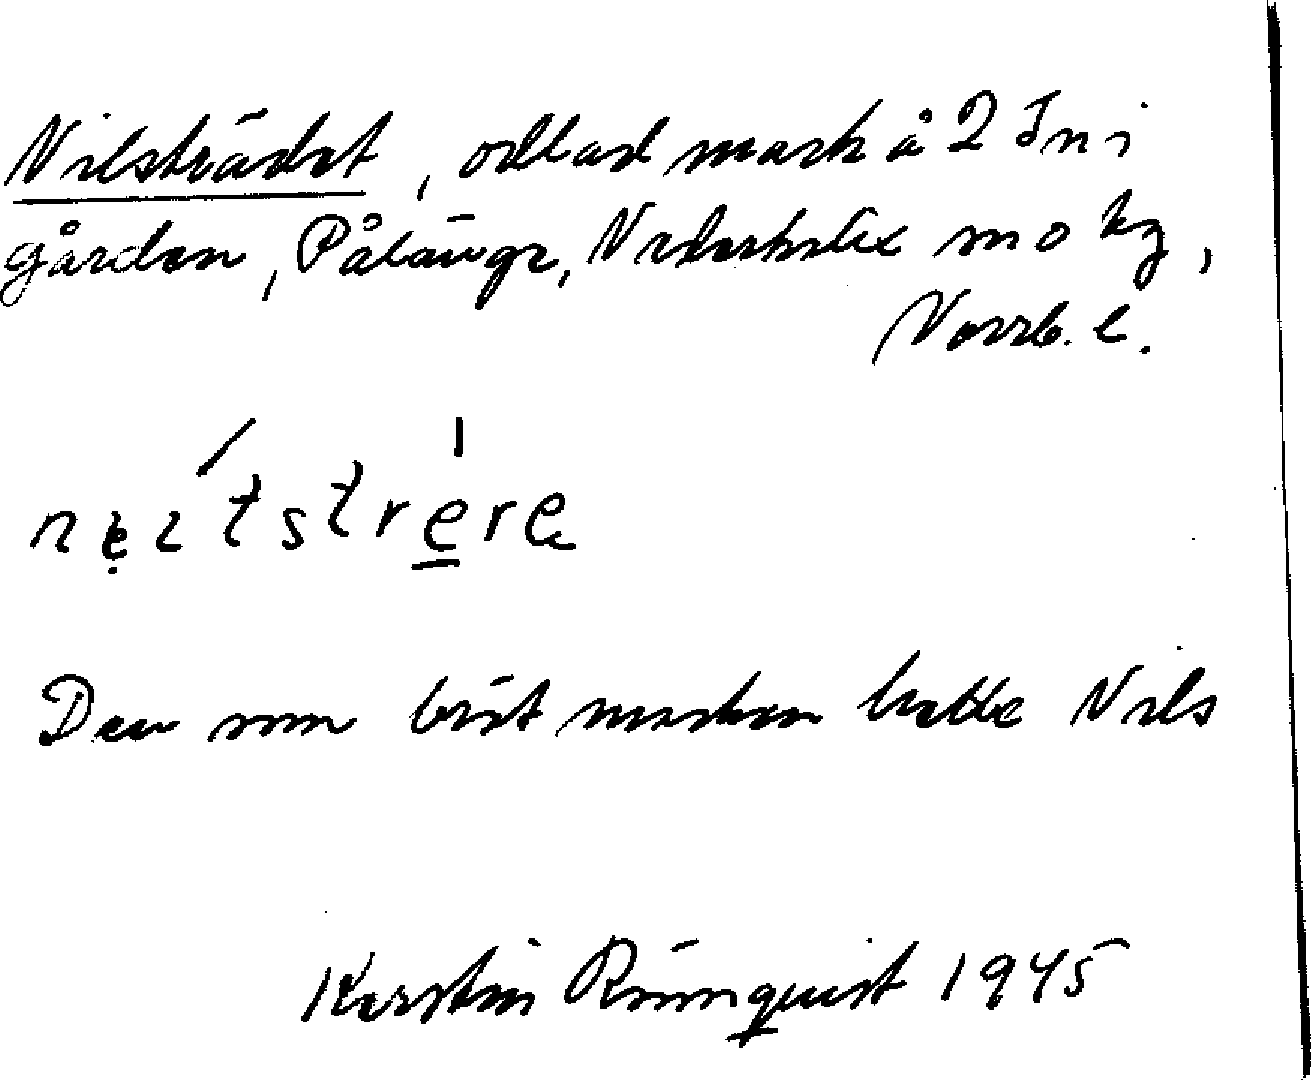 Nilsträdet, odlad mark å 2 Jn i
gården, Pålänge, Nederkalix sn o tg,
Norrb. l.
Den som bröt marken hette Nils
Kerstin Rönnquist 1945